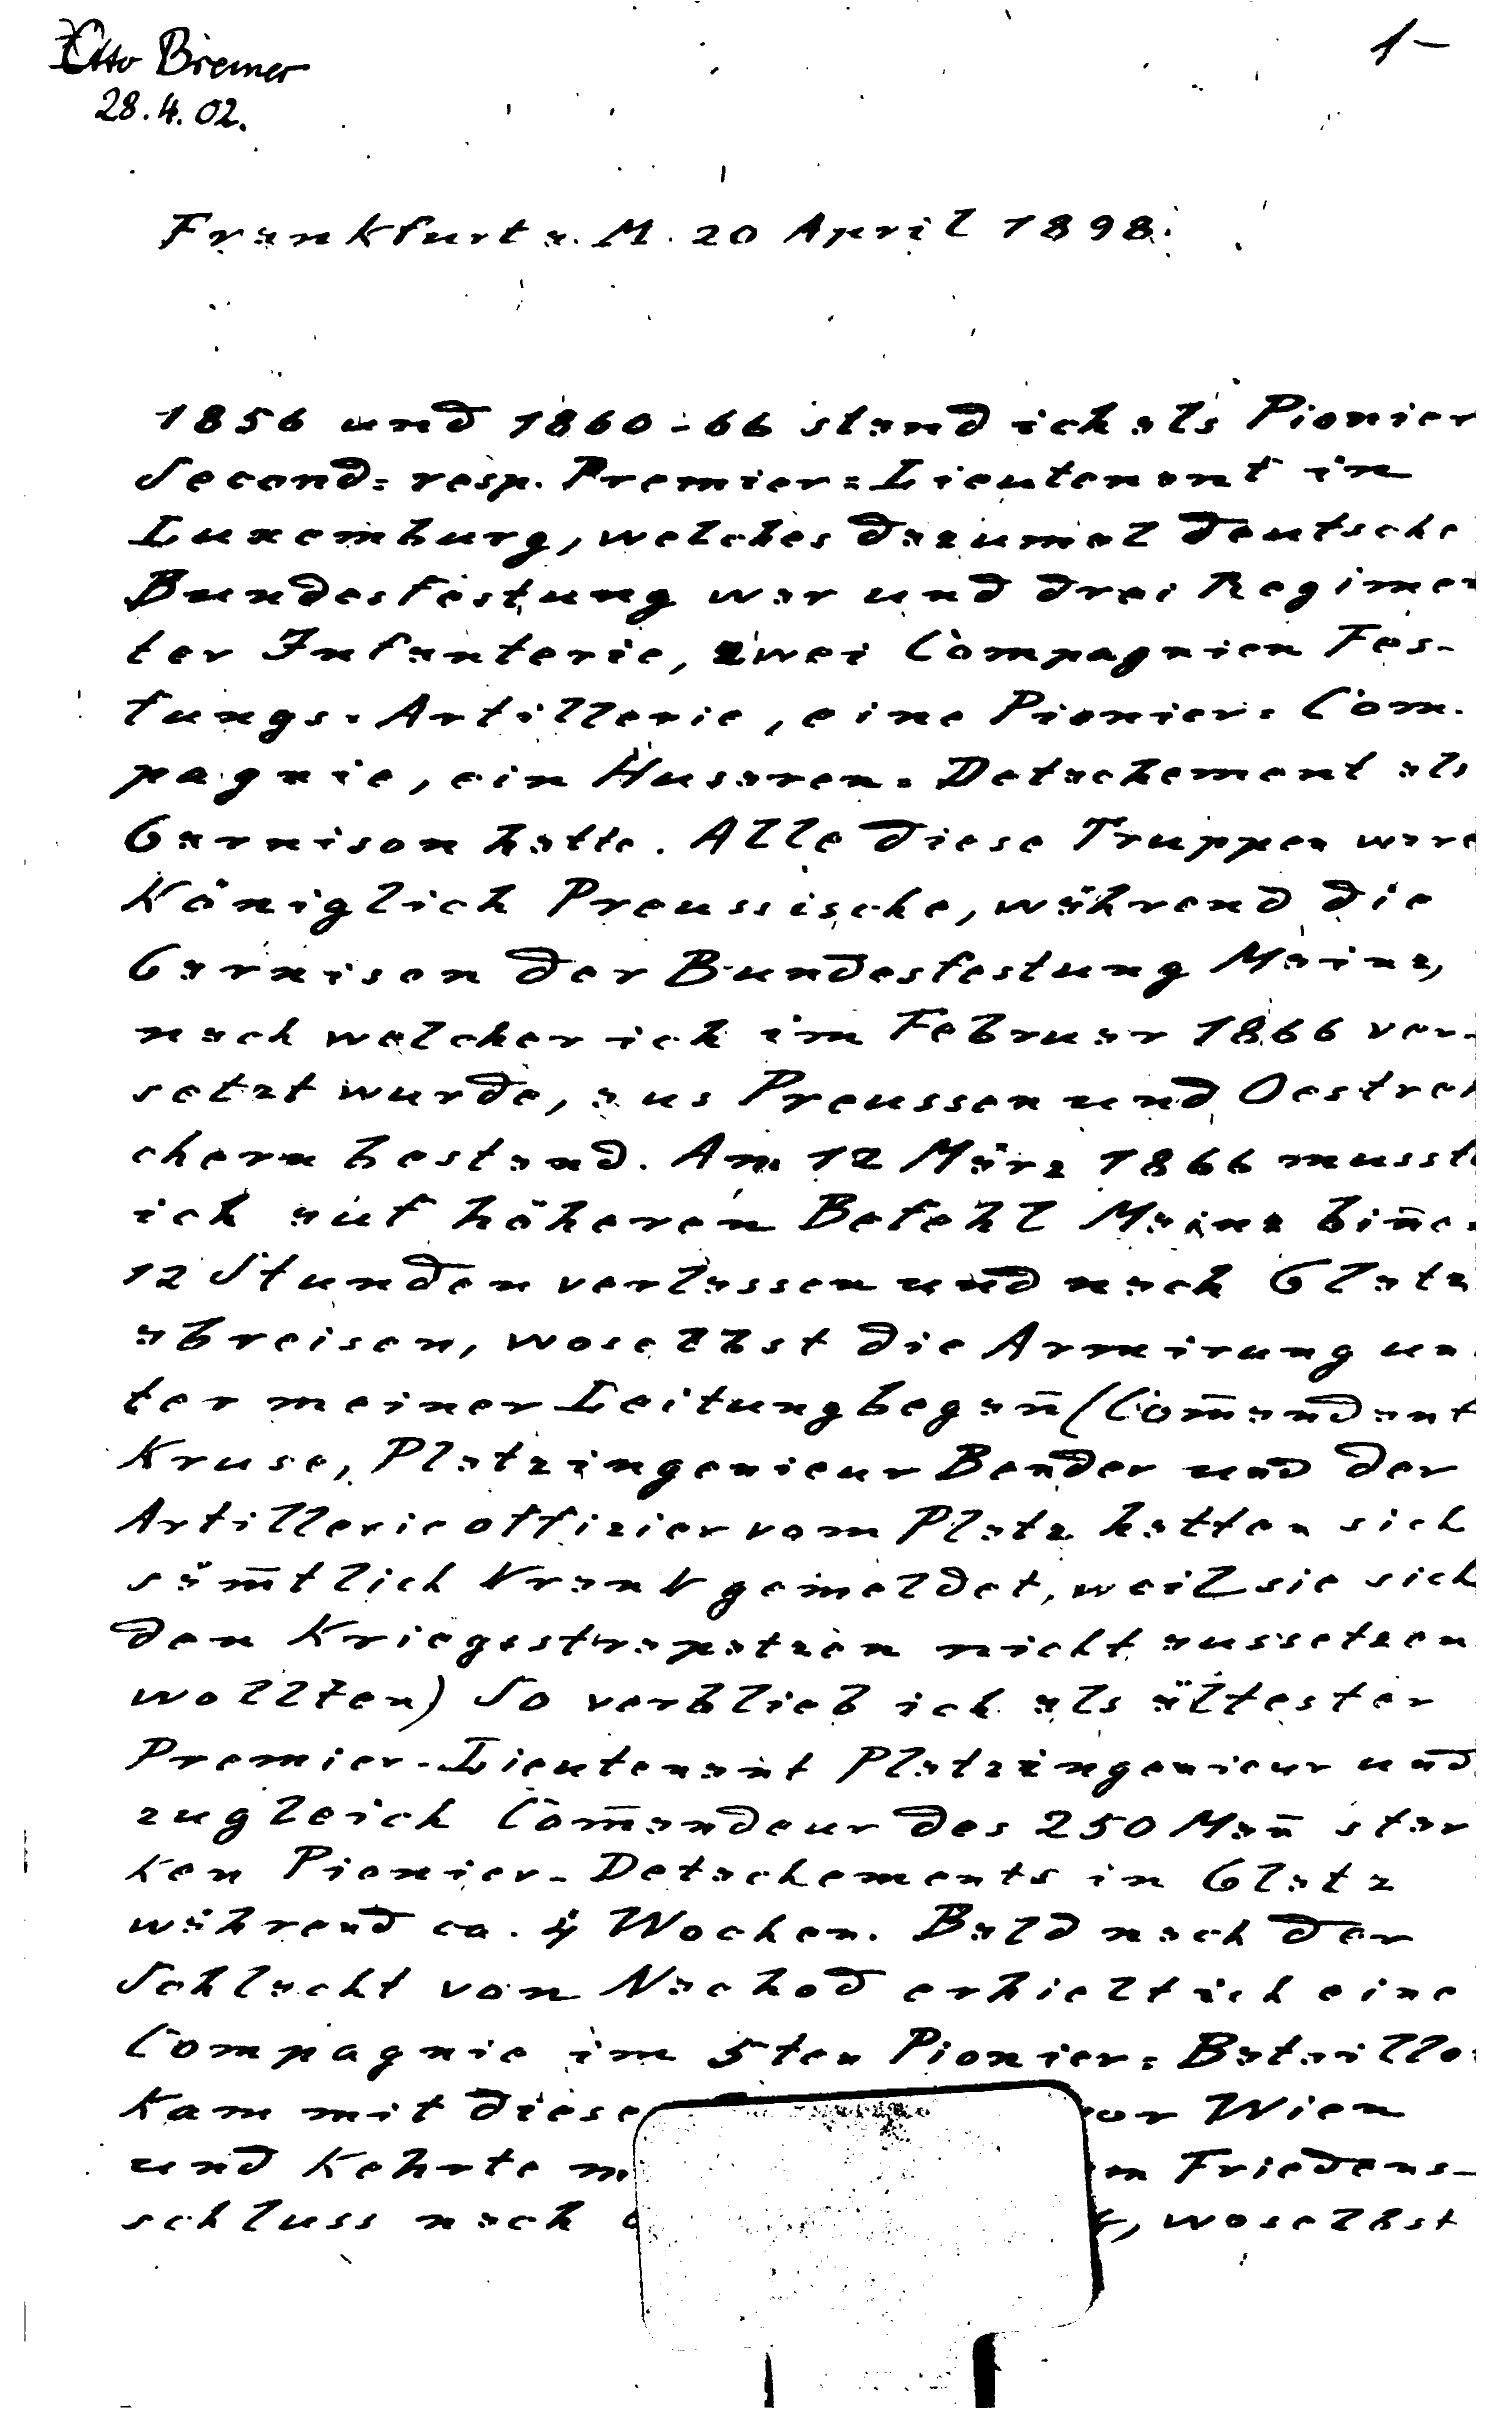 Otto Bremer
28.4.02.
1-
Frankfurt a. M. 20 April 1898.
1856 und 1860-66 stand ich als Pionier
Second= resp. Premier=Lieutenant in
Luxemburg, welches dazumal deutsche
Bundesfestung war und drei Regimen
ter Infanterie, zwei Compagnien Fes-
tungs-Artillerie, eine Pionier-Com-
pagnie, ein Husaren=Detachement als
Garnison hatte. Alle diese Truppen ware
Königlich Preussische, während die
Garnison der Bundesfestung Mainz,
nach welcher ich im Februar 1866 ver-
setzt wurde, aus Preussen und Oestrei
chern bestand. Am 12 März 1866 musste
ich auf höheren Befehl Mainz bin̄en
12 Stunden verlassen und nach Glatz
abreisen, woselbst die Armirung un-
ter meiner Leitung began̄ (Com̄andant
Kruse, Platzingenieur Bender und der
Artillerieoffizier vom Platz hatten sich
säm̄tlich krank gemeldet, weil sie sich
den Kriegsstrapatzen nicht aussetzen
wollten) So verblieb ich als ältester
Premier-Lieutenant Platzingenieur und
zugleich Com̄andeur des 250 Man̄ star
ken Pionier-Detachements in Glatz
während ca. 4 Wochen. Bald nach der
Schlacht von Nachod erhielt ich eine
Compagnie im 5ten Pionier=Bataillo
Kam mit diese vor Wien
und Kehrte Friedens-
schluss nach woselbst